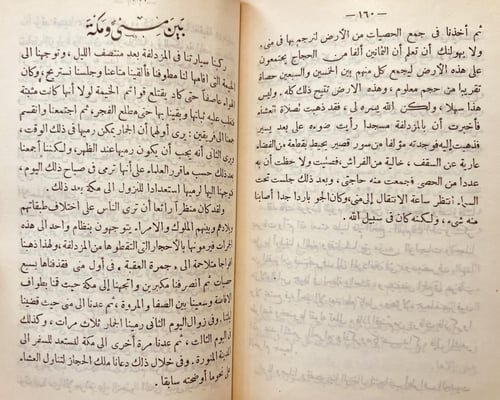 — ١٦٠ —
ثم أخذنا فى جمع الحصيات من الأرض لنرجم بها فى منى.
ولا يهولنك أن تعلم أن الثمانين ألفا من الحجاج يجتمعون
على هذه الأرض ليجمع كل منهم بين الخمسين والسبعين حصاة
تقريبا من حجم معلوم، وهذه الأرض تتيح ذلك كله. وليس
هذا سهلا، ولكن الله يسره لى، فقد ذهبت لصلاة العشاء
فأخبرت أن بالمزدلفة مسجدا رأيت ضوءه على بعد يسير
فذهبت إليه فوجدته مؤلفا من سور قصير يحيط بقطعة من الفضاء
عارية عن السقف، خالية من الفراش، فصليت ولا حظت أن به
عددا من الحصى فجمعت منه حاجتى، وبعد ذلك جلست تحت
السماء. انتظر ساعة الانتقال إلى منى، وكان الجو باردا جدا أصابنا
منه شىء، ولكنه كان فى سبيل الله.
بين منى ومكة
ركبنا سيارتنا فى المزدلفة بعد منتصف الليل، وتوجهنا الى
الخيمة التى أقامها لنا مطوفنا فألقينا متاعنا وجلسنا نستريح، وكان
الهواء عاصفا حتى كاد يقتلع قوائم الخيمة لولا أنها كانت مثبتة
فتغلب عليه ثباتها وبقينا بها حتى مطلع الفجر، ثم اجتمعنا وانقسم
جمعنا الى فريقين: يرى أولهما أن الجمار يمكن رميها فى ذلك الوقت،
ويرى الثانى أنه يجب أن يكون رميها عند الظهر، ولكننا أجمعنا
بعد ذلك حسب ما قرر العلماء على أنها ترمى فى صباح ذلك اليوم،
توجهنا اليها لرميها استعدادا للنزول الى مكة بعد ذلك.
ولقد كان منظرا رائعا أن ترى الناس على اختلاف طبقاتهم
وبلادهم وبينهم الملوك والأمراء يتوجهون بنظام واحد الى هذه
الجمرات فيرمونها بالأحجار التى التقطوها من المزدلفة، ولهذا ذهبنا
أفواجا متلاحمة الى «جمرة العقبة» فى أول منى فقذفناها بسبع
حصيات ثم انصرفنا مكبرين واتجهنا الى مكة حيث قمنا بطواف
الافاضة وسعينا بين الصفا والمروة، ثم عدنا الى منى حيث قضينا
ليلتنا. وفى زوال اليوم الثانى رمينا الجمار ثلاث مرات، وكذلك
فى اليوم الثالث، ثم عدنا مرة أخرى الى مكة لنستعد للسفر الى
المدينة المنورة. وفى خلال ذلك دعانا ملك الحجاز لتناول العشاء
على نحو ما أوضحته سابقا.